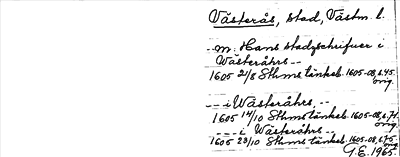 Västerås, stad, Västm. l.
--m. Hans stadzschrifuer i
Wästeråhrs --
1605 21/8 Sthms tänkeb. 1605-08, s. 45.
orig.
-- i Wästeråhrs, --
1605 14/10 Sthms tänkeb. 1605-08, s. 71.
orig.
--- i Wästeråhrs --
1605 23/10 Sthms tänkeb. 1605-08, s. 75.
orig.
G.E. 1965.